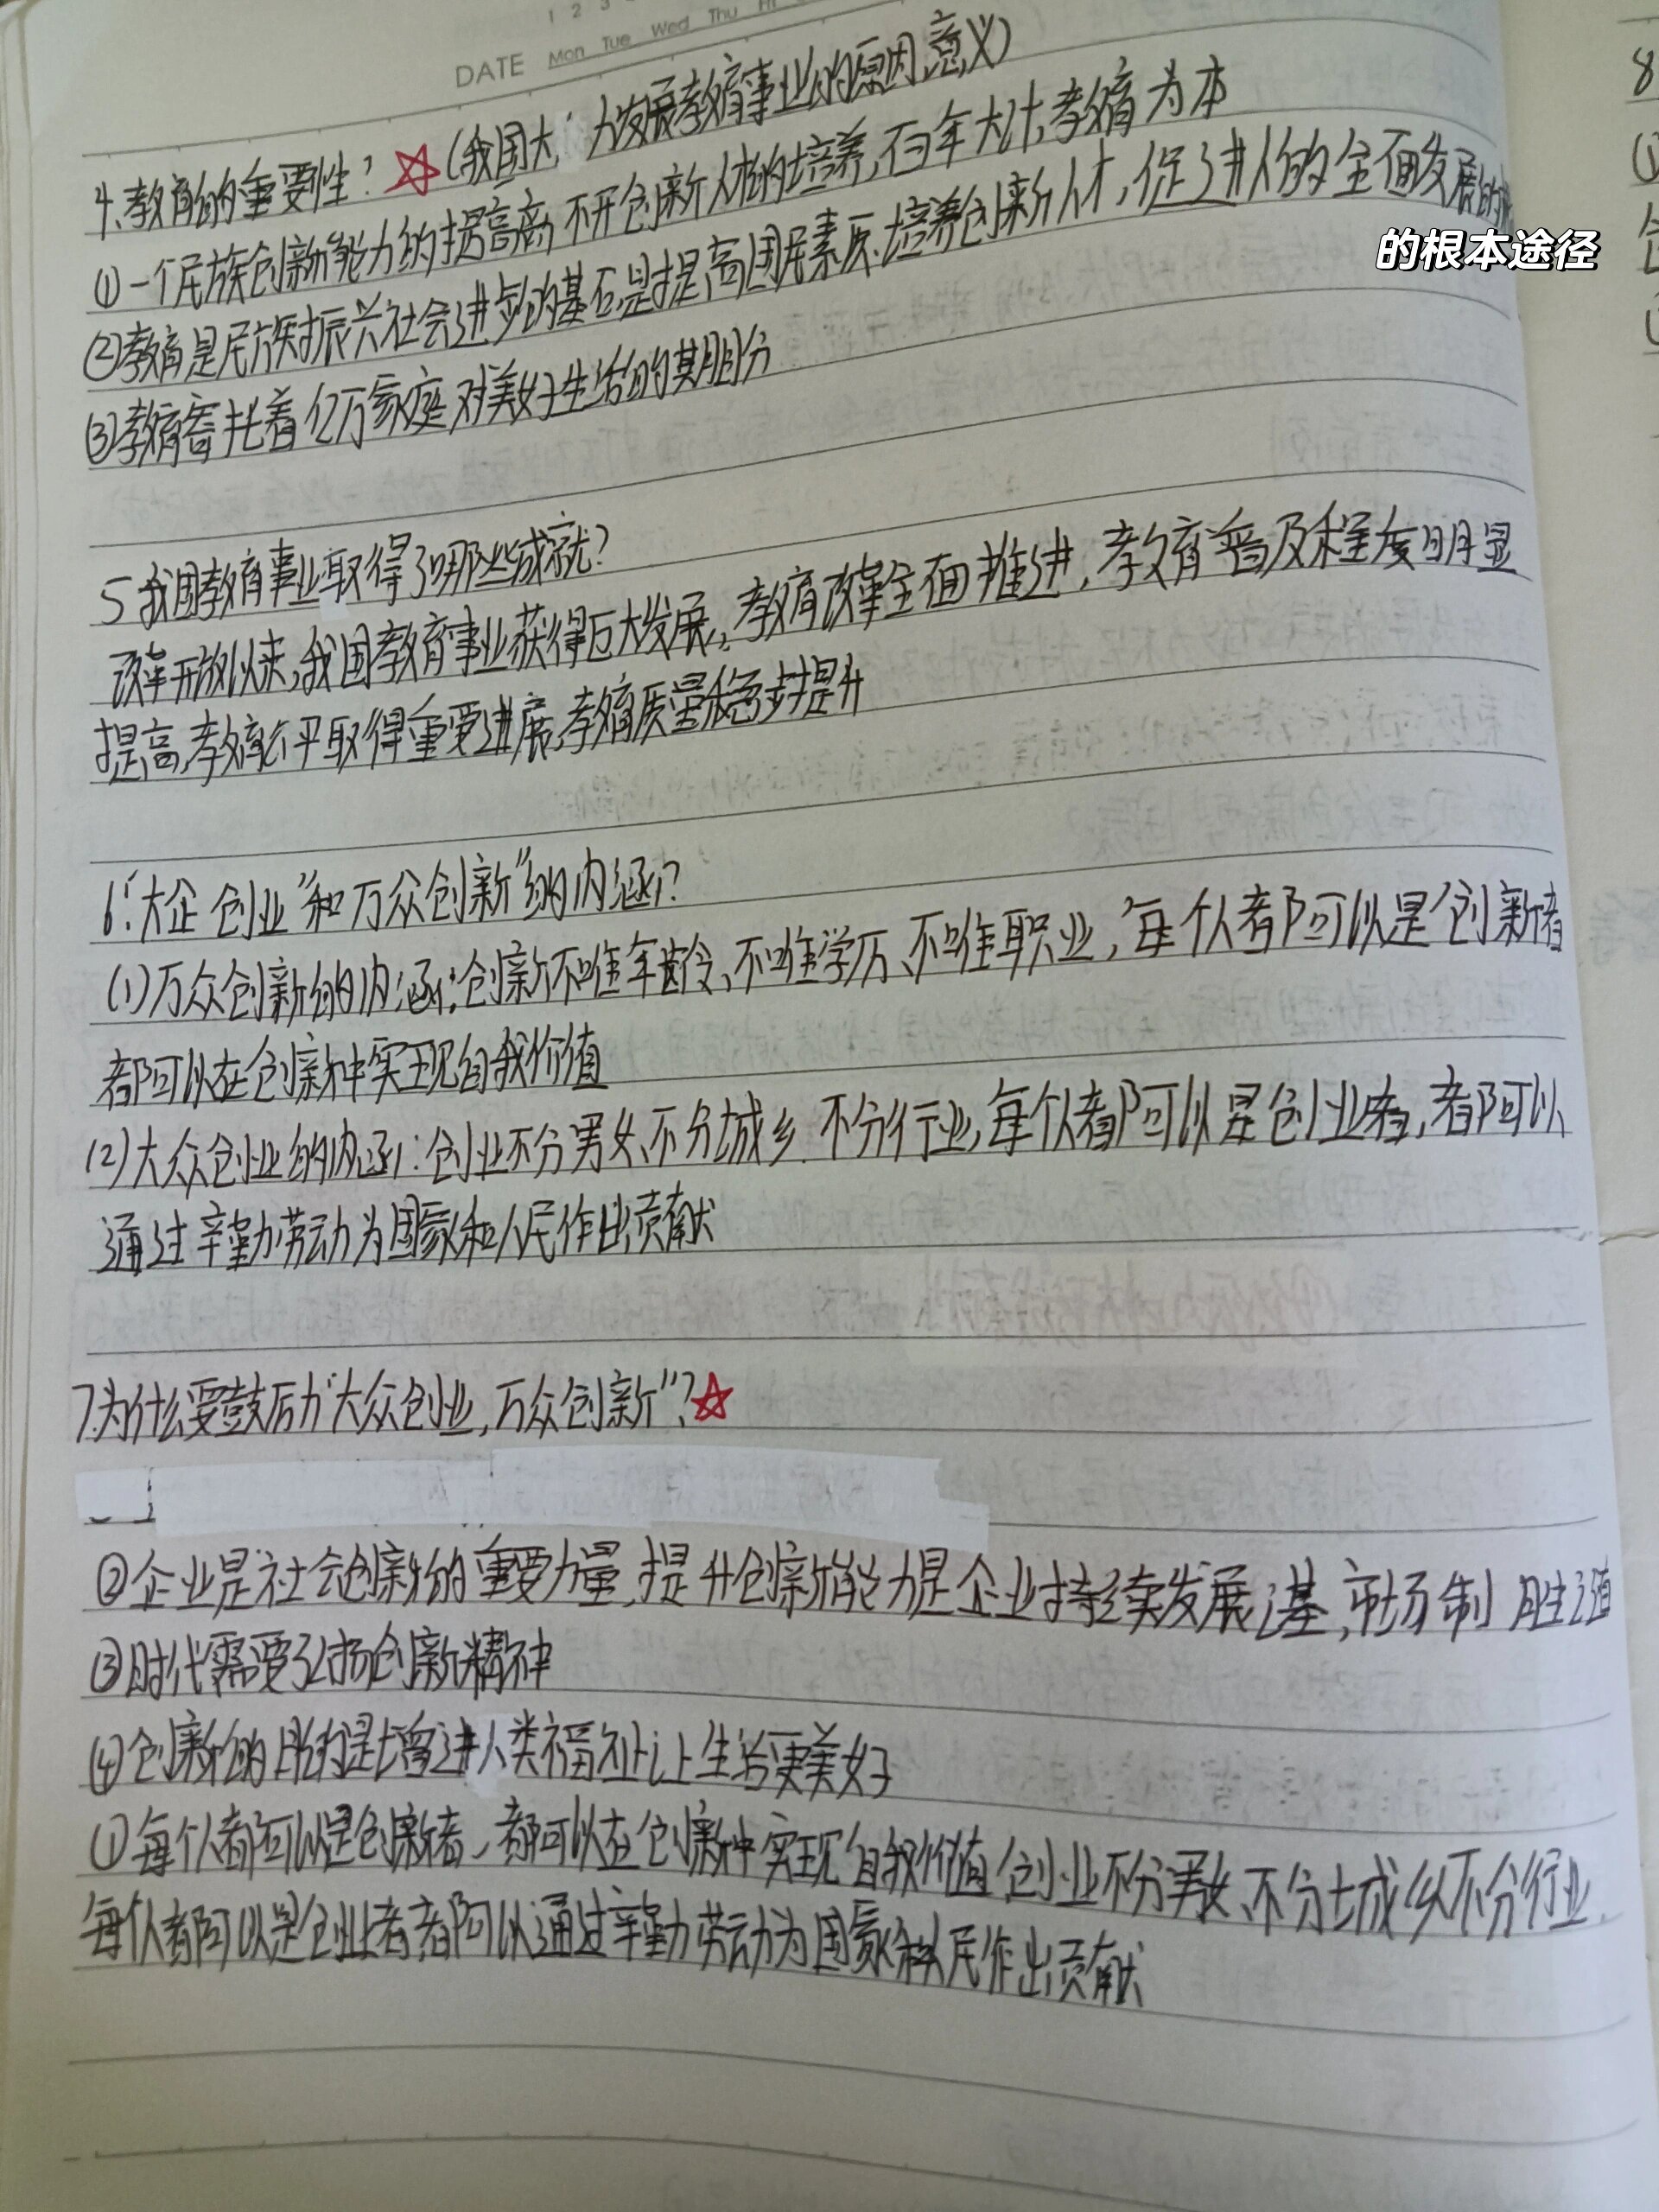 1 2 3
DATE Mon Tue Wed Thu Fri
4.教育的重要性?☆(我国大力发展教育事业的原因,意义)
①一个民族创新能力的提高离不开创新人才的培养,百年大计,教育为本
②教育是民族振兴社会进步的基石,是提高国民素质、培养创新人才,促进人的全面发展的
的根本途径
③教育寄托着亿万家庭对美好生活的期盼
5.我国教育事业取得了哪些成就?
改革开放以来,我国教育事业获得巨大发展,教育改革全面推进,教育普及程度明显
提高,教育公平取得重要进展,教育质量稳步提升
6."大企创业"和万众创新"的内涵?
(1)万众创新的内涵:创新不唯年龄、不唯学历、不唯职业,每个人都可以是创新者
都可以在创新中实现自我价值
(2)大众创业的内涵:创业不分男女、不分城乡、不分行业,每个人都可以是创业者,都可以
通过辛勤劳动为国家和人民作出贡献
7.为什么要鼓励"大众创业,万众创新"?☆
②企业是社会创新的重要力量,提升创新能力是企业持续发展之基,市场制胜之道
③时代需要弘扬创新精神
④创新的目的是增进人类福祉,让生活更美好
①每个人都可以是创新者、都可以在创新中实现自我价值,创业不分男女、不分城乡不分行业,
每个人都可以是创业者者都可以通过辛勤劳动为国家和人民作出贡献
8
①